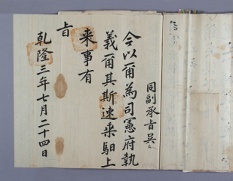 同副承旨吳
今以爾爲司憲府執
義爾其斯速乘馹上
来事有
旨
乾隆三年七月二十四日